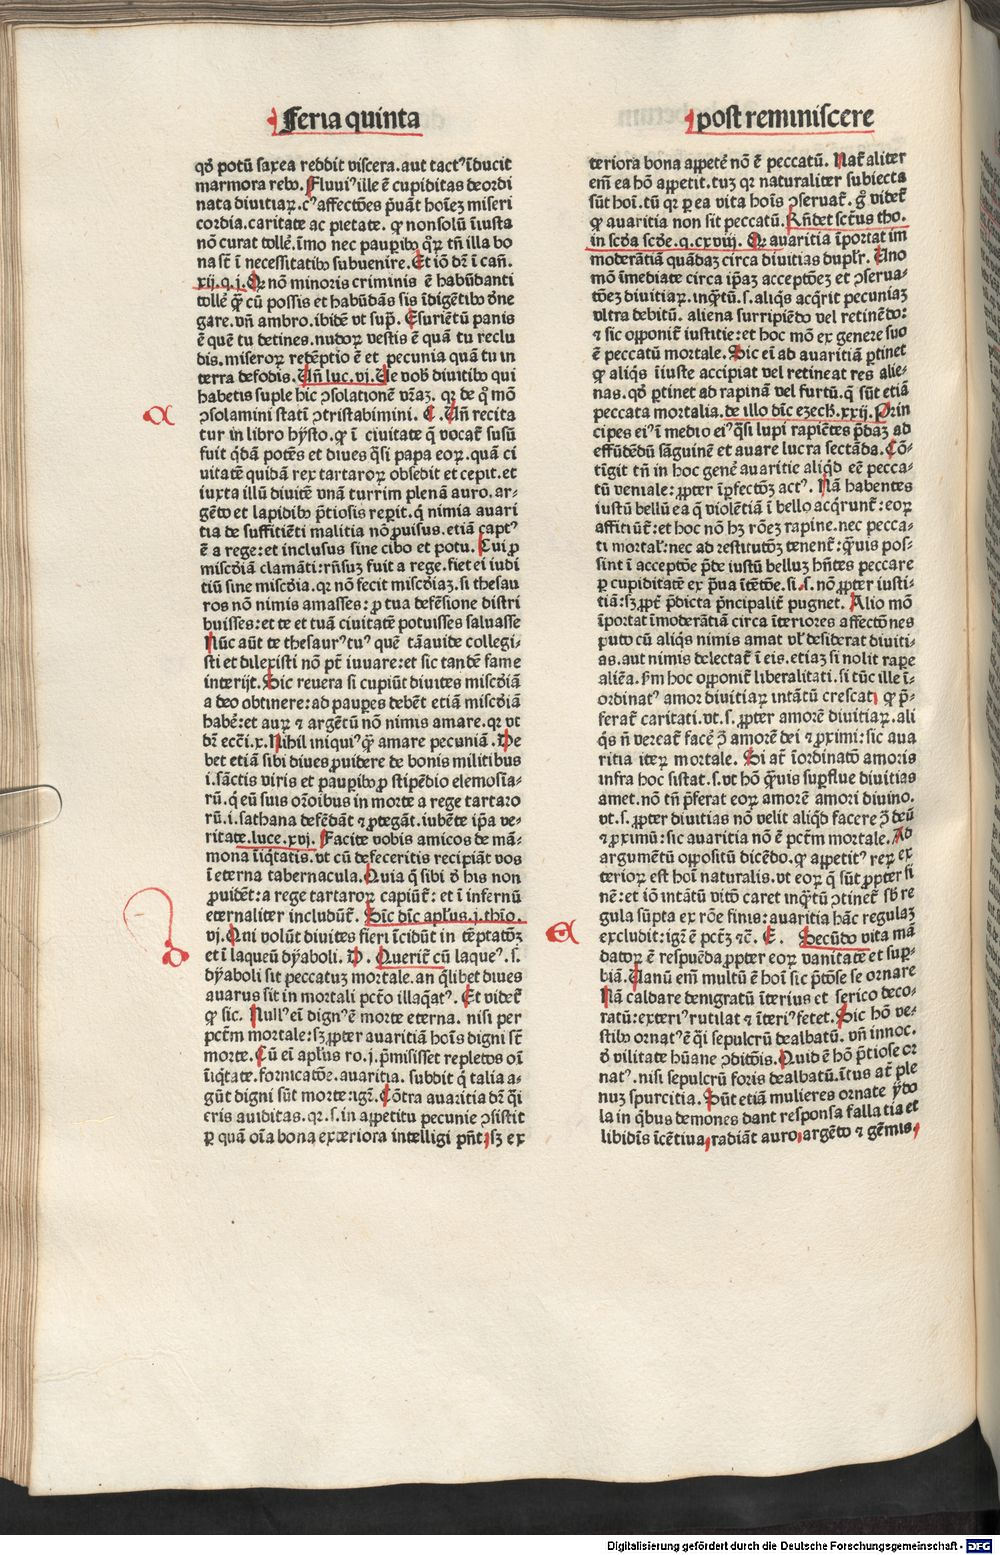 Feria quinta
qd' potū saxea reddit viscera.aut tactꝰ īducit
marmora rebꝰ.Fluviꝰ ille ē cupiditas deordi
nata divitiaꝝ.cꝰ affectōes pͥuāt hoīez miseri
cordia.caritate ac pietate. qꝛ nonsolū īiusta
nō curat tollē.īmo nec pauꝑibꝰ q̄ꝝ tn̄ illa bo
na st̄ ī necessitatibꝰ subuenire.Et iō dr̄ ī can̄.
xij.q.j.Qꝛ nō minoris criminis ē habūdanti
tollē q̄ꝫ cū possis et habūdās sis īdigētibꝰ dene
gare.vn̄ ambro.ibidē vt supͣ. Esuriētū panis
ē quē tu detines.nudoꝝ vestis ē quā tu reclu
dis.miseroꝝ redēptio ē et pecunia quā tu in
terra defodis.Un̄ luc.vj.Ue vob' divitibꝰ qui
habetis suple hic ꝯsolationē vr̄aꝫ. qꝛ de qͦ mō
ꝯsolamini statī ꝯtristabimini. C. Un̄ recita
tur in libro hysto.ꝙ ī civitate q̄ vocat̄ susū
fuit qͥdā potēs et diues qͣsi papa eoꝝ.quā ci
uitatē quidā rex tartaroꝝ obsedit et cepit.et
iuxta illū diuitē vnā turrim plenā auro.ar⸗
gēto et lapidibꝰ p̄tiosis reꝑit.qͥ nimia auari
tia de suffitiēti malitia nō ꝓuisus.etiā captꝰ
ē a rege:et inclusus sine cibo et potu.Cui ꝓ
miscdiā clamāti:rn̄suꝫ fuit a rege.fiet ei iudi
tiū sine miscdia.qꝛ nō fecit miscdiaꝫ.si thesau
ros nō nimis amasses:ꝓ tua defēsione distri
buisses:et te et tuā ciuitatē potuisses saluasse
Nūc aūt te thesaurꝰ tuꝰ quē tā auide collegi⸗
sti et dilexisti nō pt̄ iuuare:et sic tandē fame
interijt.Sic reuera si cupiūt diuites miscdiā
a deo obtinere:ad pauꝑes debēt etiā miscdiā
habē:et auꝝ ⁊ argētū nō nimis amare.qꝛ vt
dr̄ ecci.x.Nihil iniquiꝰ q̄ꝫ amare pecuniā.De
bet etiā sibi diues ꝓuidere de bonis militibus
i.sāctis viris et pauꝑibꝰ ꝓ stipēdio elemosīa⸗
rū.qͥ eū suis orōibus in morte a rege tartaro
rū.i.sathana defēdāt ⁊ ꝓtegāt.iubēte ip̄a ve⸗
ritate.luce.xvj. Facite vobis amicos de mā⸗
mona īiqͥtatis.vt cū defeceritis recipiāt vos
ī eterna tabernacula.Quia qͥ sibi d' his non
ꝓuidēt:a rege tartaroꝝ capiūt̄: et ī infernū
eternaliter includūt̄. Sic̄ dīc apl'us.j.thīo.
vj.Qui volūt diuites fieri īcidūt in tēptatōꝫ
et ī laqueū dyaboli. D. Querit̄ cū laqueꝰ.s.
dyaboli sit peccatuꝫ mortale.an qͥlibet diues
auarus sit in mortali pctō illaqͣatꝰ. Et videt̄
ꝙ sic. Nullꝰ eī dignꝰ ē morte eterna. nisi per
pctm̄ mortale:sꝫ ꝓpter auaritiā hoīs digni st̄
morte.Cū eī apl'us ro.j.pͥmisisset repletos oī
īiqͥtate.fornicatōe.auaritia. subdit qͥ talia a⸗
gūt digni sūt morte:igr̄.Cōtra auaritia dr̄ qͣi
eris auiditas.qꝛ.s.in appetitu pecunie ꝯsistit
ꝑ quā oīa bona exteriora intelligi pn̄t.sꝫ ex
post reminiscere
teriora bona appetē nō ē peccatū. Nat̄aliter
em̄ ea hō appetit.tuꝫ qꝛ naturaliter subiecta
sūt hoī.tū qꝛ ꝑ ea vita hoīs ꝯseruat̄. gͦ videt̄
ꝙ auaritia non sit peccatū.Rn̄det sctūs tho.
in scda scde.q.cxviij. Qꝛ auaritia īportat im
moderātiā quādaꝫ circa diuitias duplr̄. Uno
mō īmediate circa ip̄aꝫ acceptōeꝫ et ꝯserua⸗
tōeꝫ diuitiaꝝ.inqͣtū.s.aliqͥs acqͥrit pecuniaꝫ
vltra debitū. aliena surripiēdo vel retinēdo:
⁊ sic opponit̄ iustitie:et hoc mō ex genere suo
ē peccatū mortale.Sic eī ad auaritiā ꝑtinet
ꝙ aliqͥs īiuste accipiat vel retineat res alie⸗
nas.qd' ꝑtinet ad rapinā vel furtū.q̄ sūt etiā
peccata mortalia.de illo dīc ezech.xxij.Prin
cipes eiꝰ ī medio eiꝰ qͣsi lupi rapiētes p̄daꝫ ad
effūdēdū sāguinē et auare lucra sectāda.Cō⸗
tigit tn̄ in hoc genē auaritie aliqͥd eē pecca⸗
tū veniale:ꝓpter īꝑfectōꝫ actꝰ. Nā habentes
iustū bellū ea q̄ violētiā ī bello acqͥrunt̄:eoꝝ
affitiūt̄:et hoc nō hꝫ rōeꝫ rapine.nec pecca⸗
ti mortal':nec ad restitutōꝫ tenent̄:qͣuis pos⸗
sint ī acceptōe p̄de iustū belluꝫ hn̄tes peccare
ꝑ cupiditatē ex pͣua ītētōe.si.s.nō ꝓpter iusti⸗
tiā:sꝫ ꝓpt̄ p̄dicta pͥncipalit̄ pugnet. Alio mō
īportat īmoderātiā circa īteriores affectōnes
ꝓuto cū aliqͥs nimis amat vl' desiderat diuiti⸗
as.aut nimis delectat̄ ī eis.etiaꝫ si nolit raꝑe
aliēa.ẜm hoc opponit̄ liberalitati.si tūc ille ī⸗
ordinatꝰ amor diuitiaꝝ intātū crescat ꝙ p̄⸗
ferat̄ caritati.vt.s.ꝓpter amorē diuitiaꝝ.ali
qͥs n̄ vereat̄ facē ꝯ̄ amorē dei ⁊ ꝓximi:sic aua
ritia iteꝝ mortale. Si at̄ īordinatꝰ amoris
infra hoc sistat.s.vt hō qͣuis suꝑflue diuitias
amet.nō tn̄ p̄ferat eoꝝ amorē amori diuino.
vt.s.ꝓpter diuitias nō velit aliqͥd facere ꝯ̄ deū
⁊ ꝓximū:sic auaritia nō ē pctm̄ mortale.Ad
argumētū oppositū dicēdo.ꝙ appetitꝰ reꝝ ex
terioꝝ est hoī naturalis.vt eoꝝ q̄ sūt ꝓpter fi
nē:et iō intātū vitō caret inqͣtū ꝯtinet̄ sb' re
gula sūpta ex rōe finis:auaritia hāc regulaꝫ
excludit:igr̄ ē pctꝫ ⁊c̄. E. Secūdo vita mā
datoꝝ ē respuēda ꝓpter eoꝝ vanitatē et suꝑ⸗
biā.Uanū em̄ multū ē hoī sic p̄tōse se ornare
Nā caldare denigratū īterius et serico deco⸗
ratū:exteriꝰ rutilat ⁊ īteriꝰ fetet.Sic hō ve⸗
stibꝰ ornatꝰ ē qͣi sepulcrū dealbatū. vn̄ innoc.
d' vilitate hūane ꝯditōis.Quid ē hō p̄tiose or
natꝰ.nisi sepulcrū foris dealbatū.ītus at̄ ple
nuꝫ spurcitia.Sūt etiā mulieres ornate ydo
la in qͥbus demones dant responsa fallatia et
libidīs īcētiua,radiāt auro,argēto ⁊ gēmis,